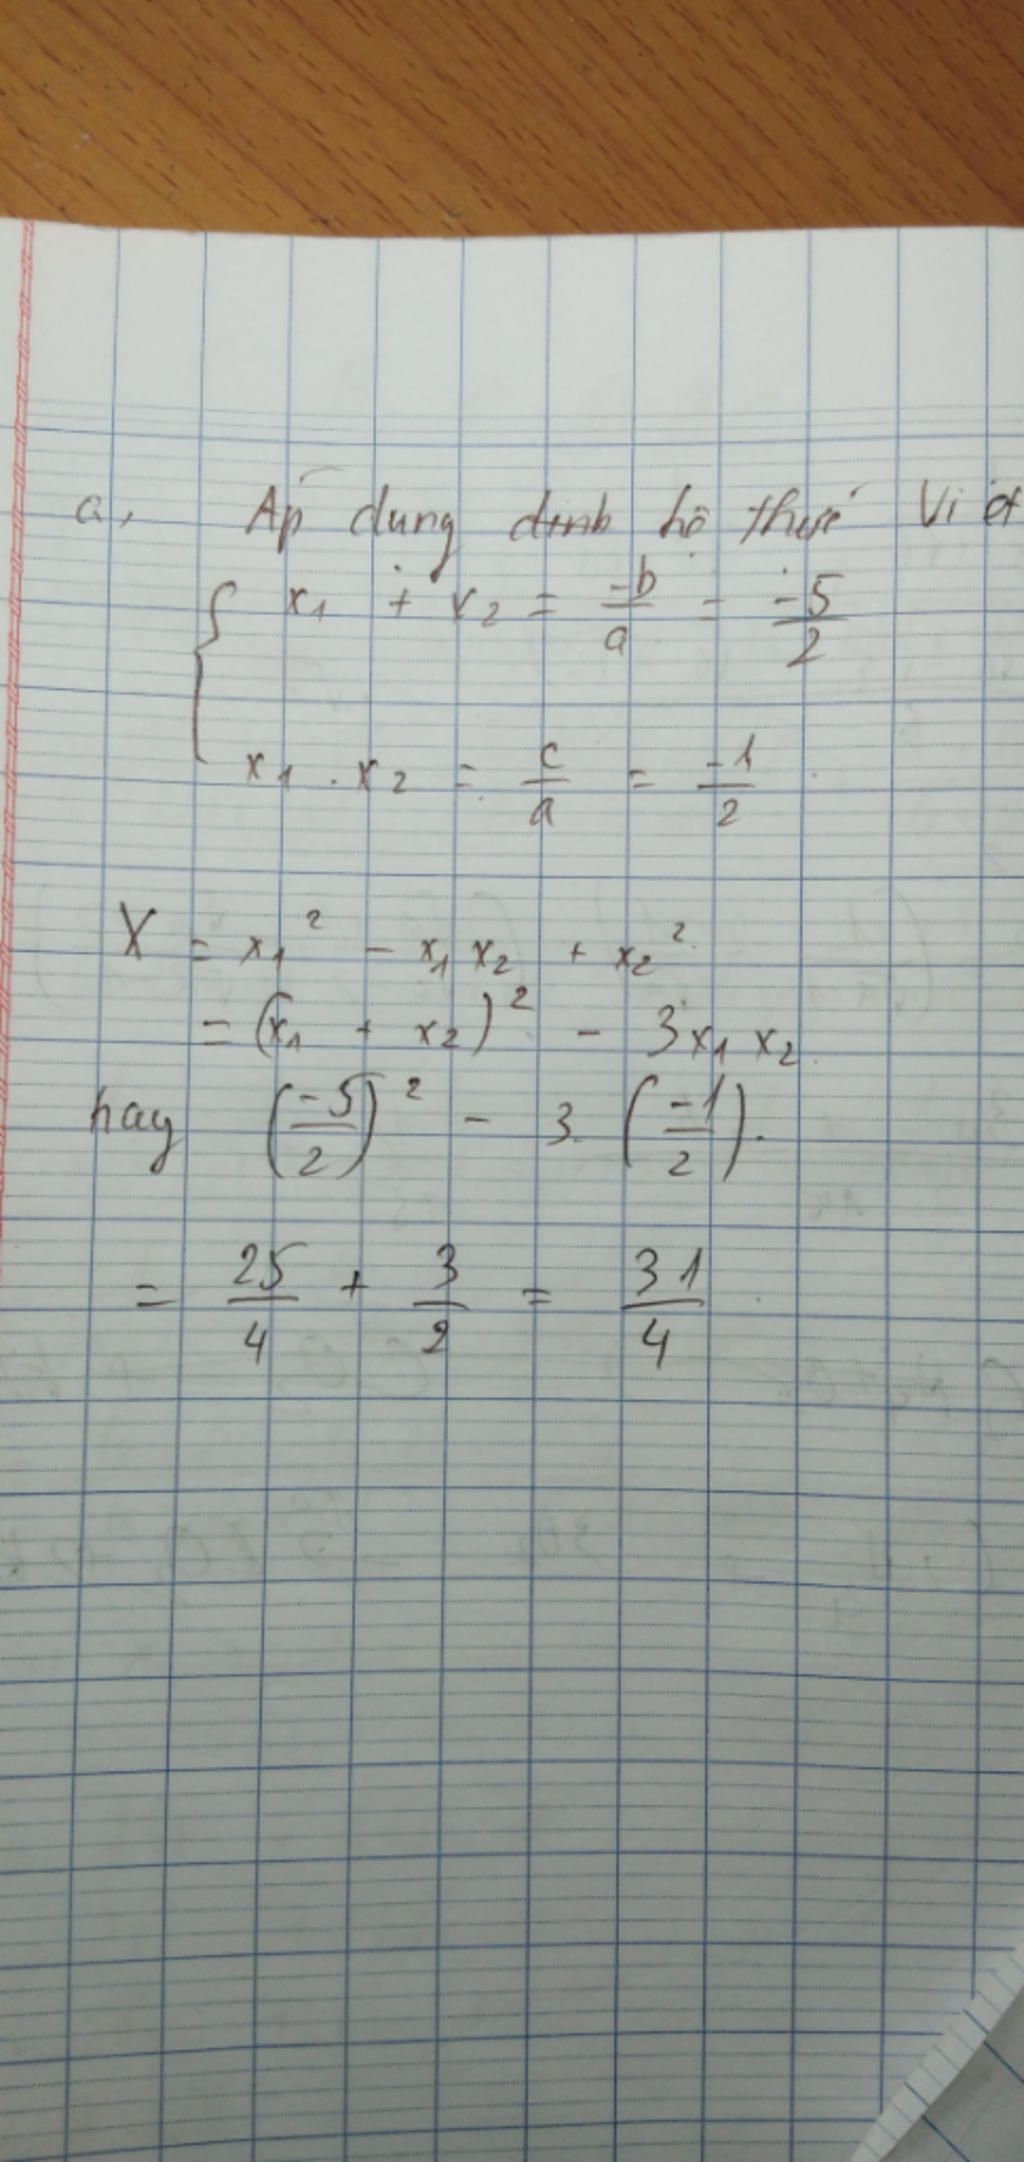 a, Áp dụng định hệ thức Vi ét
x₁ + x₂ = -b/a = -5/2
x₁ . x₂ = c/a = -1/2
X = x₁² - x₁ x₂ + x₂²
= (x₁ + x₂)² - 3x₁ x₂
hay (-5/2)² - 3. (-1/2).
= 25/4 + 3/2 = 31/4